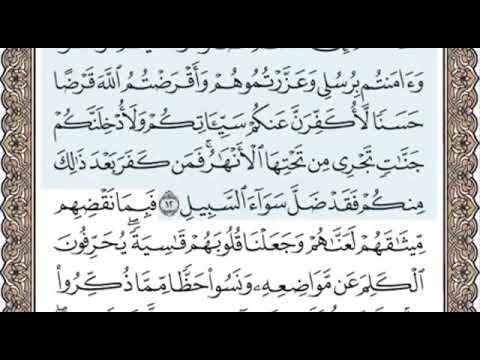 وَءَامَنتُم بِرُسُلِي وَعَزَّرْتُمُوهُمْ وَأَقْرَضْتُمُ اللَّهَ قَرْضًا
حَسَنًا لَّأُكَفِّرَنَّ عَنكُمْ سَيِّـَٔاتِكُمْ وَلَأُدْخِلَنَّكُمْ
جَنَّٰتٍ تَجْرِي مِن تَحْتِهَا الْأَنْهَٰرُ ۚ فَمَن كَفَرَ بَعْدَ ذَٰلِكَ
مِنكُمْ فَقَدْ ضَلَّ سَوَآءَ السَّبِيلِ ١٢ فَبِمَا نَقْضِهِم
مِّيثَٰقَهُمْ لَعَنَّٰهُمْ وَجَعَلْنَا قُلُوبَهُمْ قَٰسِيَةً ۖ يُحَرِّفُونَ
الْكَلِمَ عَن مَّوَاضِعِهِۦ ۙ وَنَسُوا۟ حَظًّا مِّمَّا ذُكِّرُوا۟